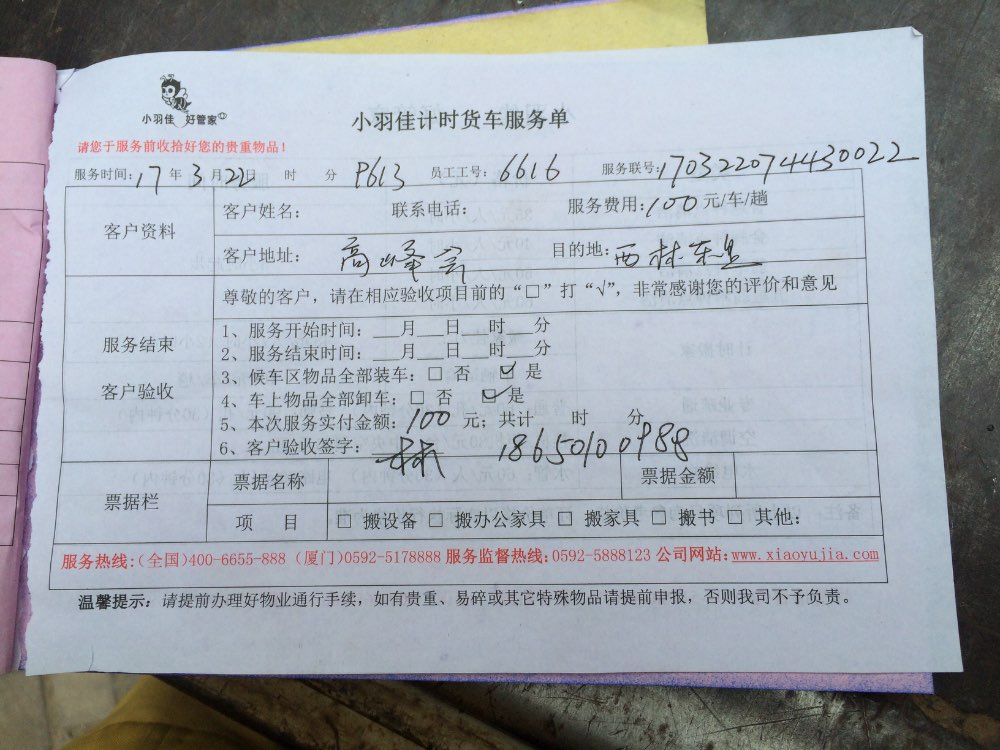 小羽佳 好管家©
小羽佳计时货车服务单
请您于服务前收拾好您的贵重物品！
服务时间：17年3月22日 时 分 P613 员工工号：6616 服务联号：170322074430022
客户资料
客户姓名： 联系电话： 服务费用：100元/车/趟
客户地址： 高峰 目的地：西林东里
服务结束
客户验收
尊敬的客户，请在相应验收项目前的“□”打“√”，非常感谢您的评价和意见
1、服务开始时间：___月___日___时___分
2、服务结束时间：___月___日___时___分
3、候车区物品全部装车：□ 否 ☑ 是
4、车上物品全部卸车：□ 否 ☑ 是
5、本次服务实付金额：100 元；共计 时 分
6、客户验收签字：林 18650100988
票据栏
票据名称 票据金额
项 目 □ 搬设备 □ 搬办公家具 □ 搬家具 □ 搬书 □ 其他：
服务热线：（全国）400-6655-888（厦门）0592-5178888 服务监督热线：0592-5888123 公司网站：www.xiaoyujia.com
温馨提示：请提前办理好物业通行手续，如有贵重、易碎或其它特殊物品请提前申报，否则我司不予负责。